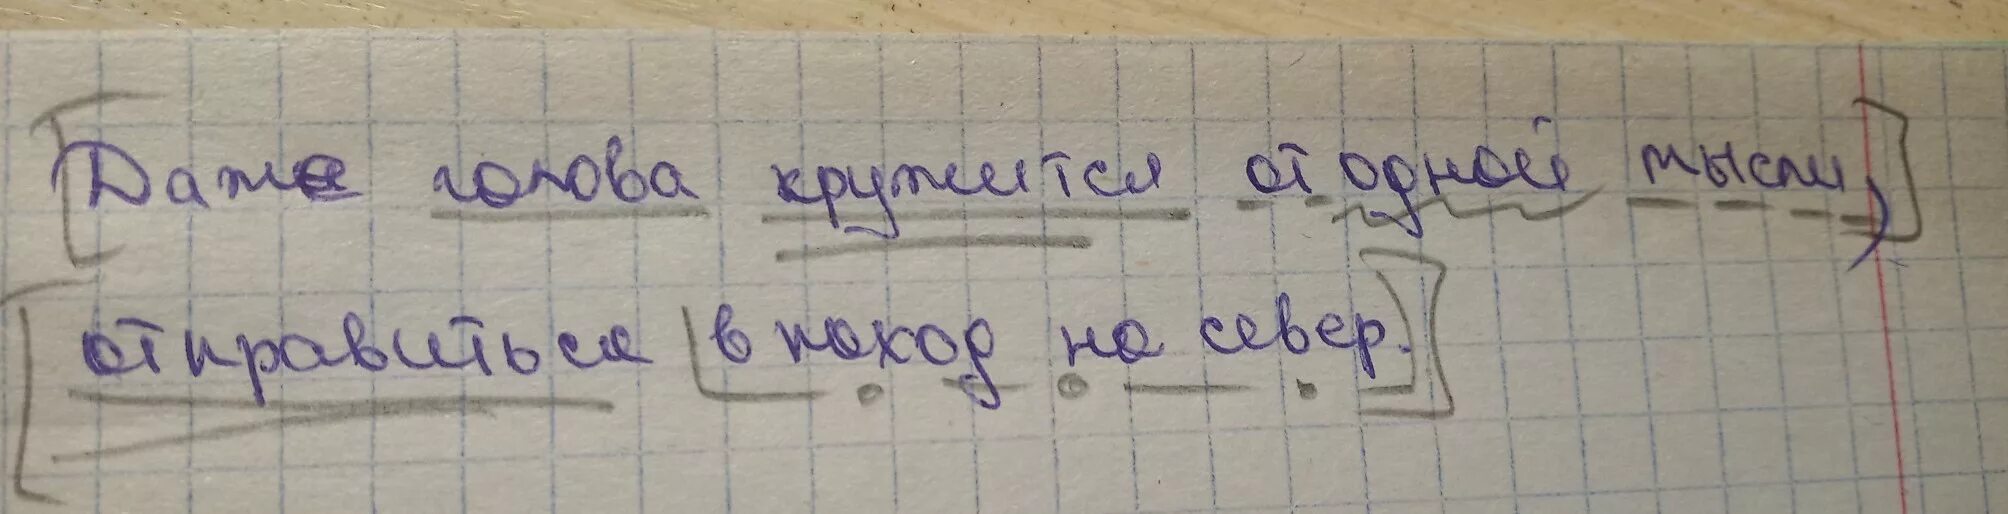 Даже голова кружится от одной мысли,
отправиться в поход на север.